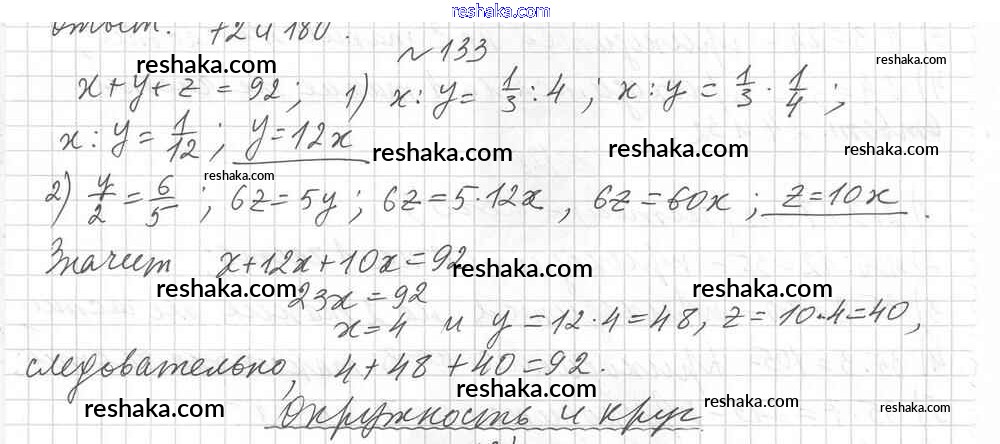 reshaka.com
ответ. 72 и 180.
№ 133
reshaka.com reshaka.com
x + y + z = 92; 1) x : y = 1/3 : 4; x : y = 1/3 · 1/4;
x : y = 1/12; y = 12x
reshaka.com reshaka.com reshaka.com
2) y/z = 6/5; 6z = 5y; 6z = 5·12x, 6z = 60x; z = 10x.
reshaka.com
Значит x + 12x + 10x = 92
reshaka.com reshaka.com
reshaka.com reshaka.com reshaka.com
23x = 92
x = 4 и y = 12·4 = 48, z = 10·4 = 40,
reshaka.com reshaka.com reshaka.com
следовательно, 4 + 48 + 40 = 92.
reshaka.com reshaka.com
Окружность и круг
reshaka.com reshaka.com reshaka.com